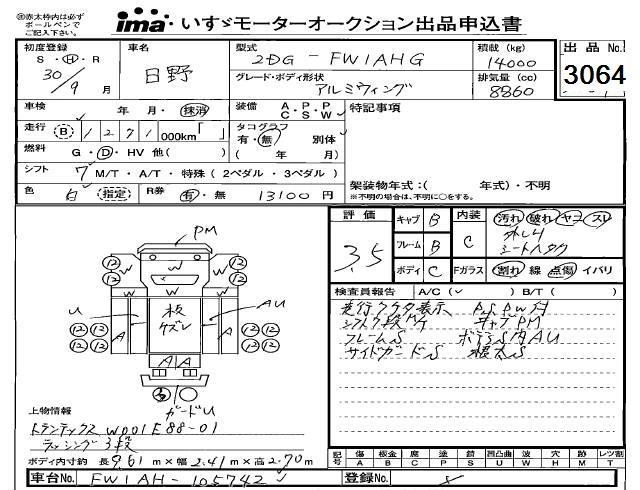 赤太枠内は必ず
ボールペンで
ご記入下さい。
ima いすゞモーターオークション出品申込書
初度登録
S・H・R
30/9 月
車名
日野
型式
2DG-FW1AHG
グレード・ボディ形状
アルミウィング
積載 (kg)
14000
排気量 (cc)
8860
出品 No.
3064
車検 年・月・抹消
装備 A・P・P C・S・W
特記事項
走行 B 1 2 7 1 000km「 」
タコグラフ
有・無 別体
( 年 月)
燃料 G・D・HV 他( )
シフト 7 M/T・A/T・特殊(2ペダル・3ペダル)
架装物年式:( 年式)・不明
※不明の場合は、不明に○をする。
色 白 (指定) R券 有・無 13100 円
評価 3.5
キャブ B
フレーム B
ボディ C
内装 C
Fガラス
汚れ 破れ ヤコ スレ
シートヘタり
割れ 線 点傷 イバリ
検査員報告 A/C( ) B/T( )
走行メータ表示 P.S P.W付
キャブPM
フレームS ボデーS内AU
サイドガードS 根太S
PM
12 12 W W 12 12
W W
U 板 ズレ AU
12 12 A A 12 12
12 12 12 12
A A
ガードU
上物情報
トランテックス W001E88-01
ラッシング3段
ボディ内寸約 長9.61 m×幅2.41 m×高2.70 m
記号 傷 A 板金 B 腐 C 塗 P 錆 S 凹凸曲 U 波 W 穴 H 跡 M レツ割 T
車台No. FW1AH-105742
登録No.